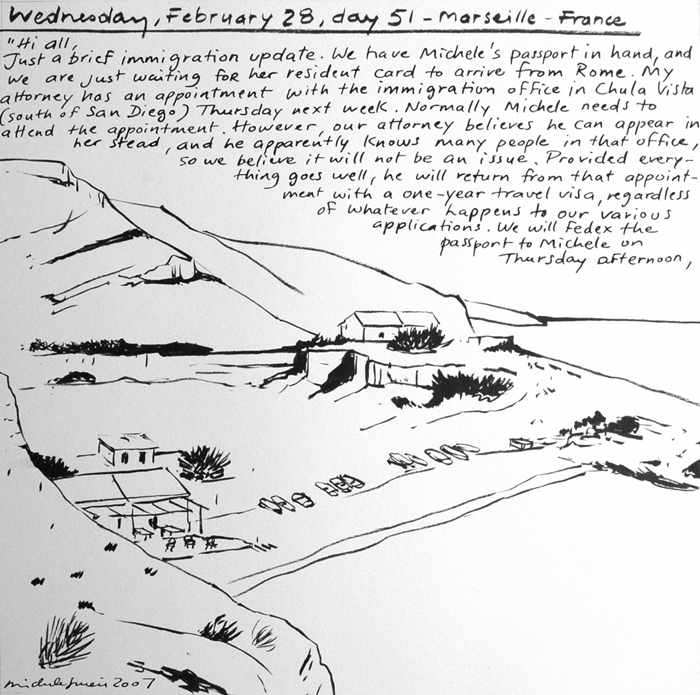 Wednesday, February 28, day 51 - Marseille - France
"Hi all,
Just a brief immigration update. We have Michele's passport in hand, and
we are just waiting for her resident card to arrive from Rome. My
attorney has an appointment with the immigration office in Chula Vista
(south of San Diego) Thursday next week. Normally Michele needs to
attend the appointment. However, our attorney believes he can appear in
her stead, and he apparently knows many people in that office,
so we believe it will not be an issue. Provided every-
thing goes well, he will return from that appoint-
ment with a one-year travel visa, regardless
of whatever happens to our various
applications. We will Fedex the
passport to Michele on
Thursday afternoon,
2007